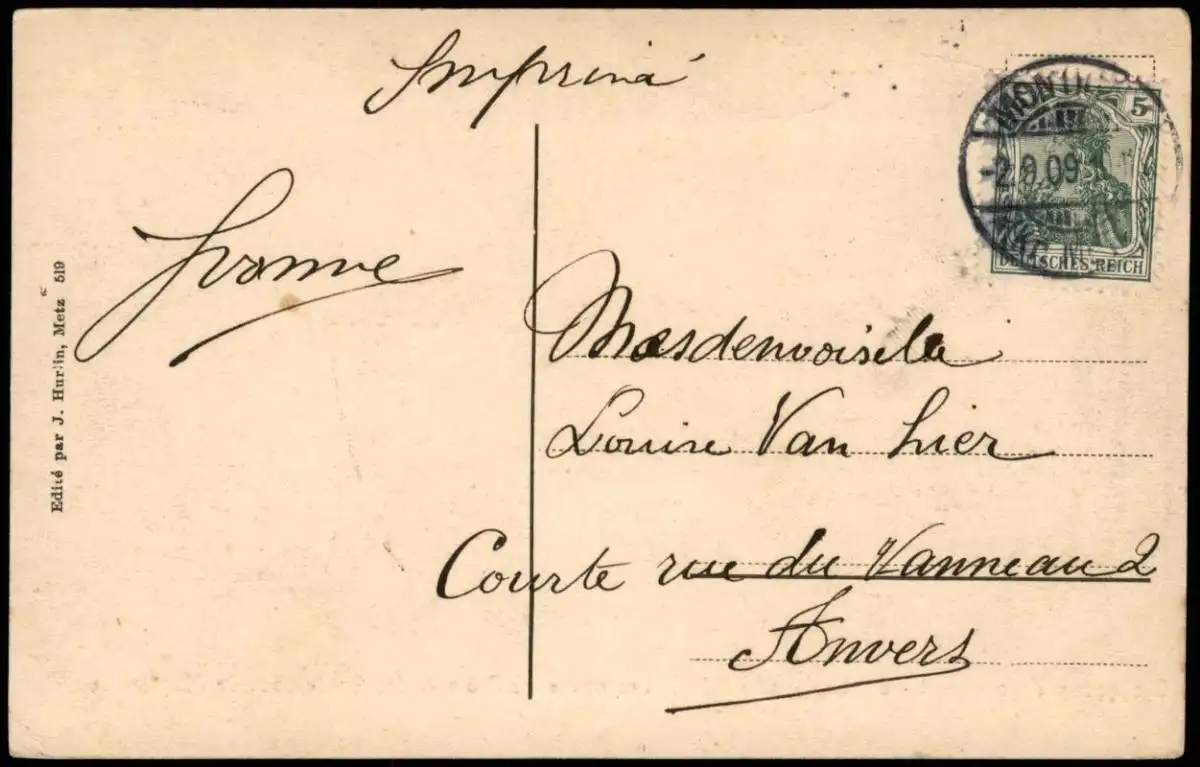 Imprimé
5
-2.9.09
DEUTSCHES REICH
Yvonne
Edité par J. Hurlin, Metz 519
Mesdemoiselle
Louise Van Lier
Courte rue du Vanneau 2
Anvers